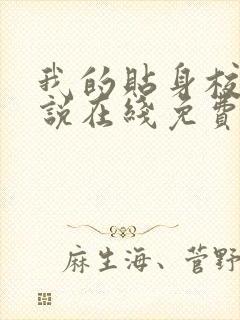 我的貼身校
說在綫免費
麻生海、菅野